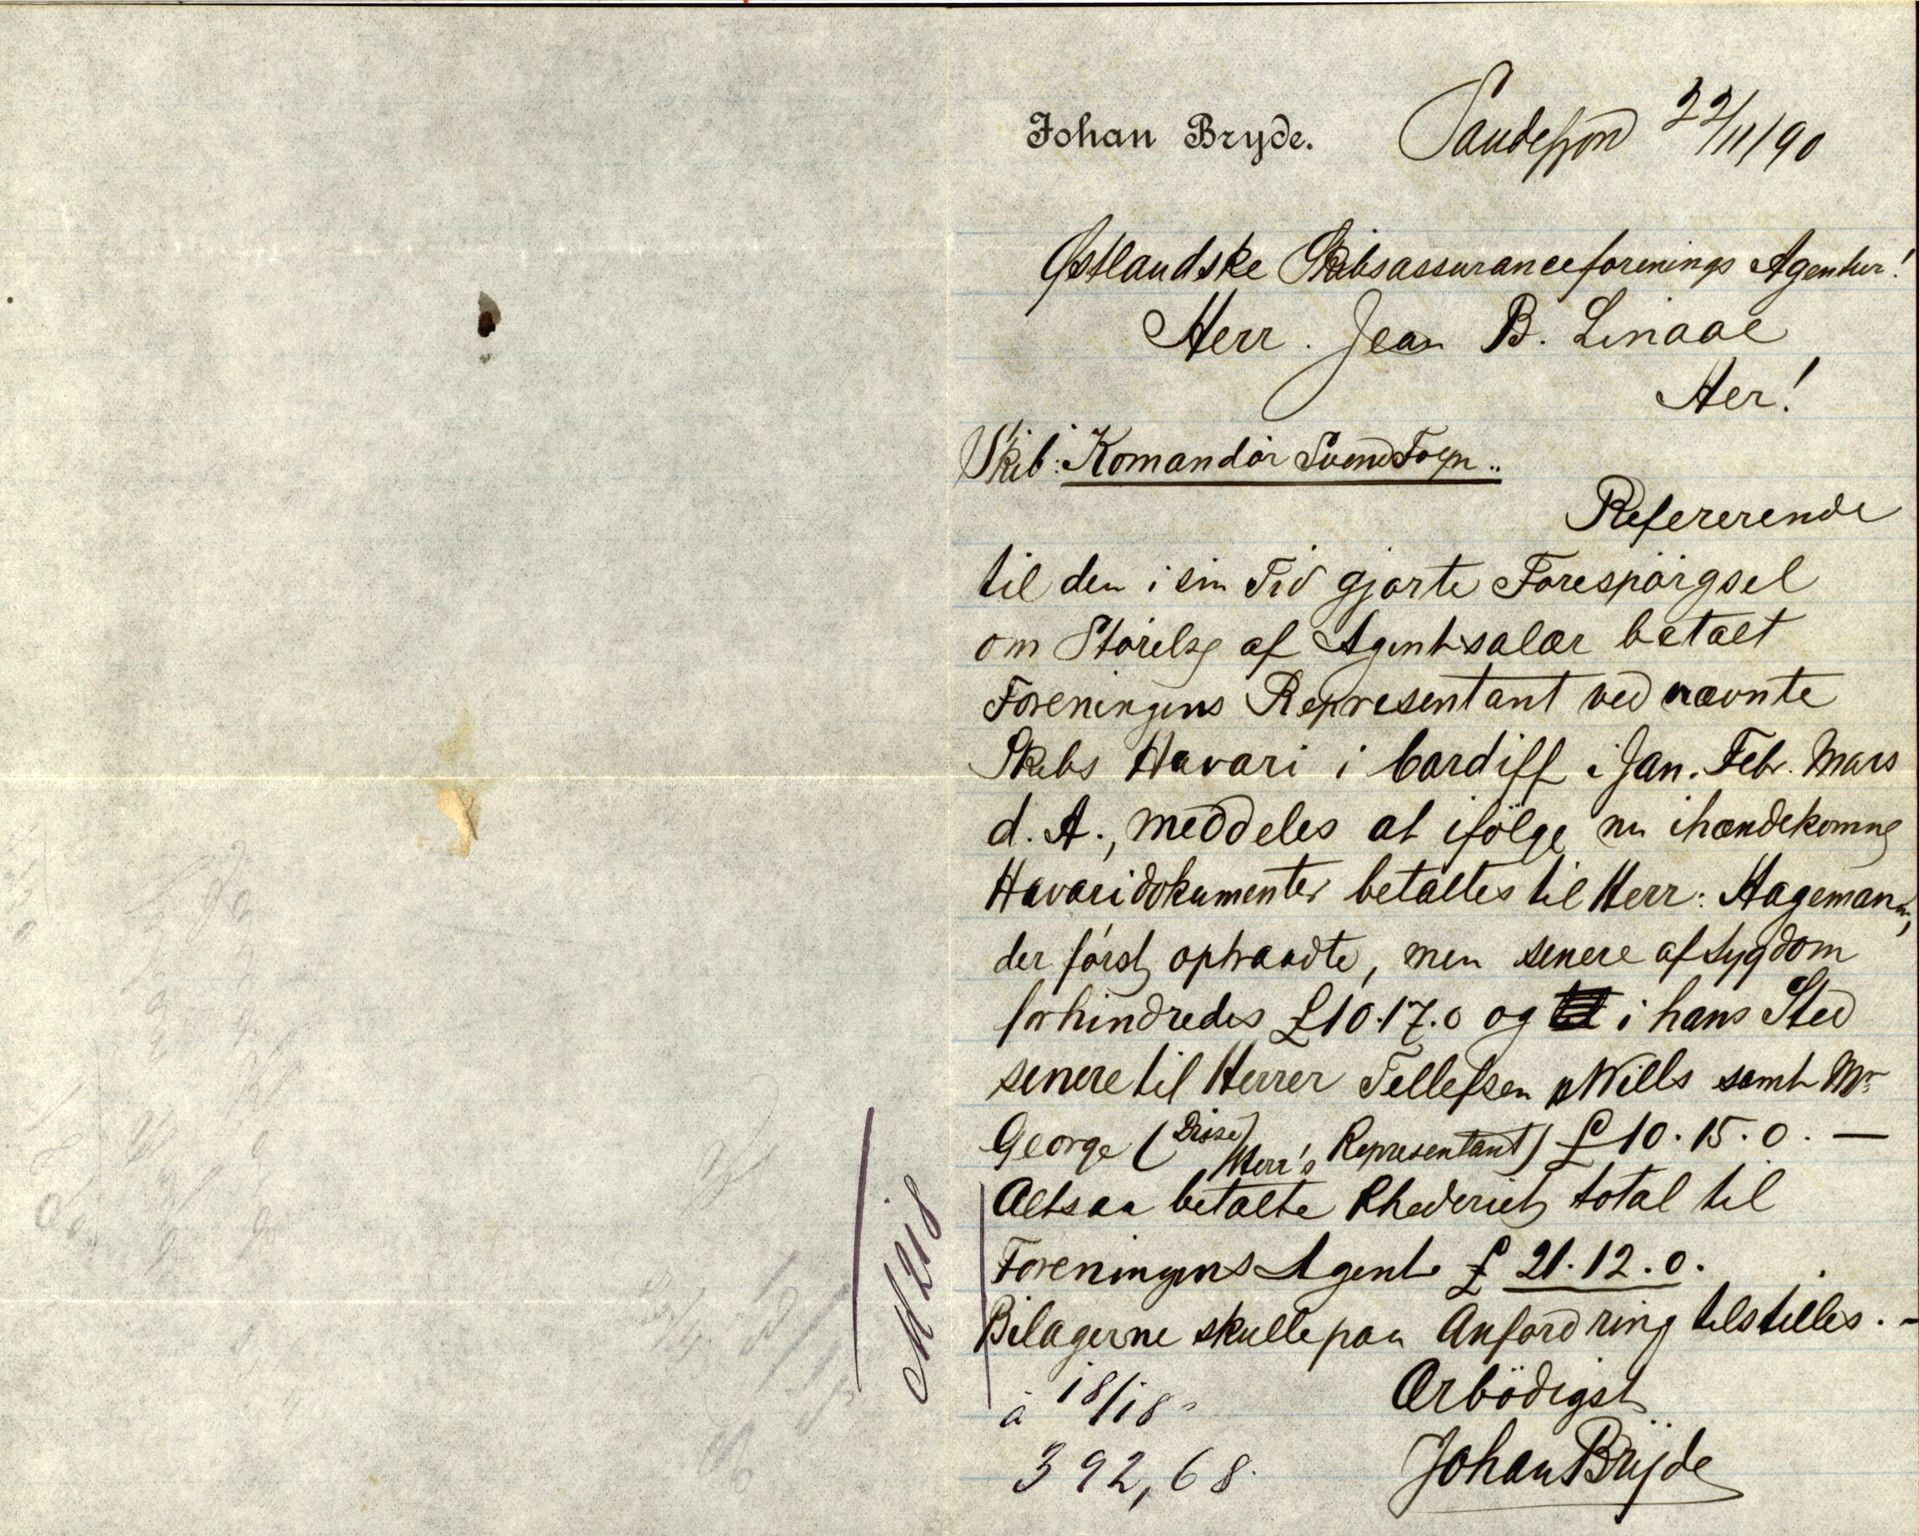 Johan Bryde.
Sandefjord 22/11/90
Østlandske Skibsassuranceforenings Agentur!
Herr. Jean B. Linaae
Her!
Skib: "Komandør Svend Foyn"
Refererende
til den i sin Tid gjorte Forespørgsel
om Størelse af Agentsalær betalt
Foreningens Representant ved nævnte
Skibs Havari i Cardiff i Jan. Febr. Mars
d. A., meddeles at ifölge nu ihændekomne
Havaridokumenter betaltes til Herr: Hagemann,
der først optraadte, men senere af Sygdom
forhindredes £10.17.0 og i hans Sted
senere til Herrer Tellefsen Wills samt Mr
George (Disse Herr's Representant) £10.15.0. —
Altsaa betalte Rhederiet total til
Foreningens Agent £ 21.12.0.
Bilagerne skulle paa Anfordring tilstilles. —
Ærbödigst
Johan Brÿde
à 18/18
392,68.
M 218